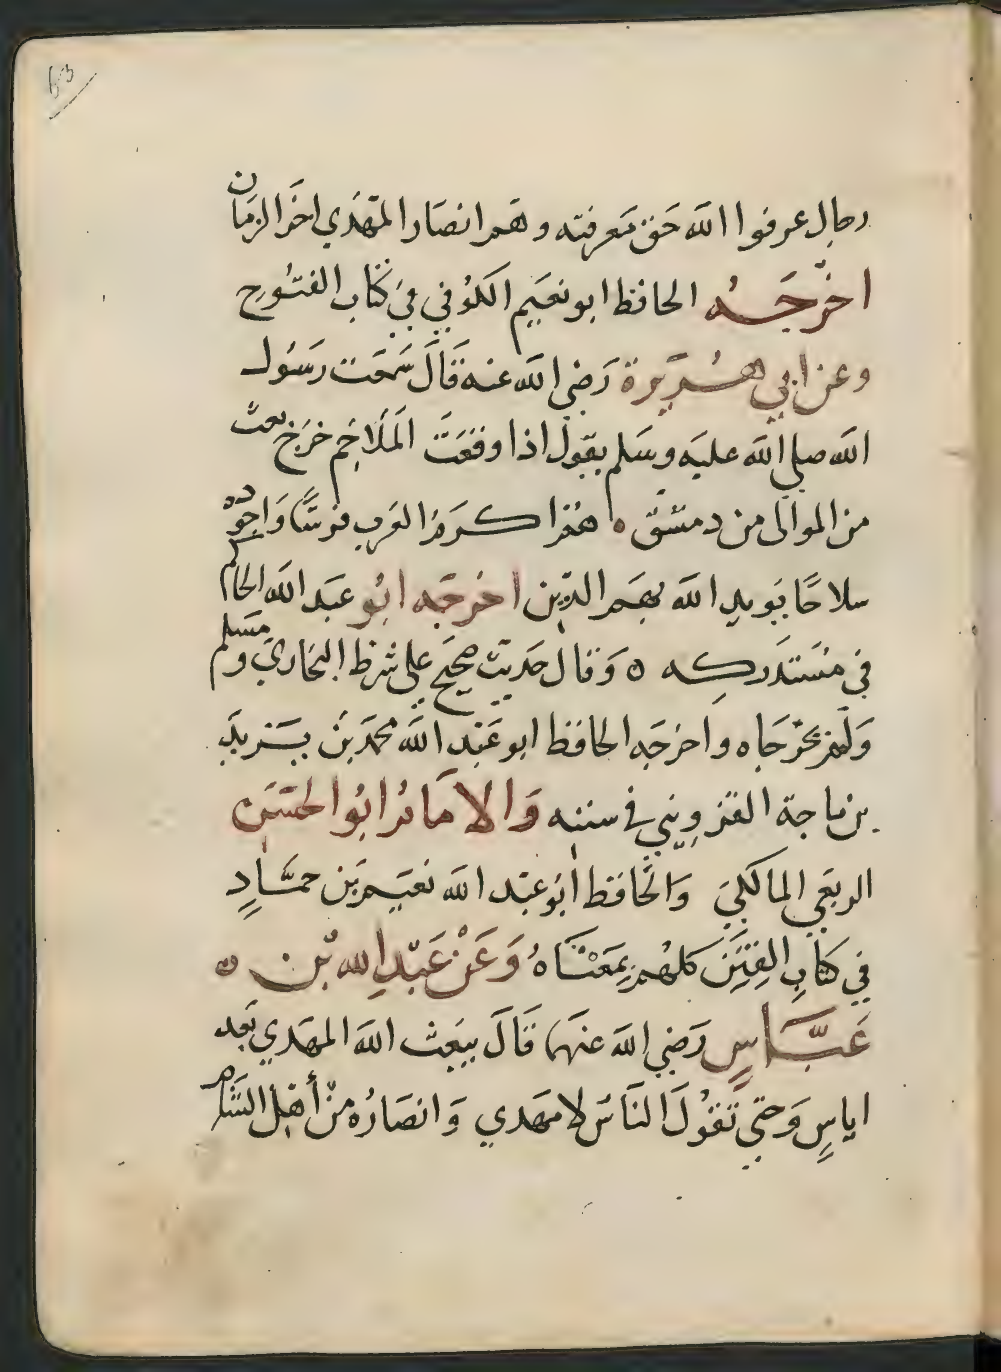 63
رجال عرفوا الله حق معرفته وهم انصار المهدي اخر الزمان
اخرجه الحافظ ابو نعيم الكوفي في كتاب الفتوح
وعن ابي هريرة رضي الله عنه قال سمعت رسول
الله صلي الله عليه وسلم يقول اذا وقعت الملاحم خرج بعث
من الموالى من دمشق ه هم اكرم العرب فرسا واجوده
سلاحا يويد الله بهم الدين اخرجه ابو عبد الله الحاكم
في مستدركه ه وقال حديث صحيح على شرط البخاري ومسلم
ولم يخرجاه واخرجه الحافظ ابو عبد الله محمد بن يزيد
بن ماجة القزويني في سننه والامام ابو الحسن
الربعي المالكي والحافظ ابو عبد الله نعيم بن حماد
في كتاب الفتن كلهم بمعناه وعن عبد الله بن ه
عباس رضي الله عنهما قال يبعث الله المهدي بعد
اياس وحتي تقول الناس لا مهدي وانصاره من أهل الشام